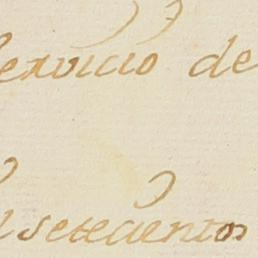 servicio de
setecientos